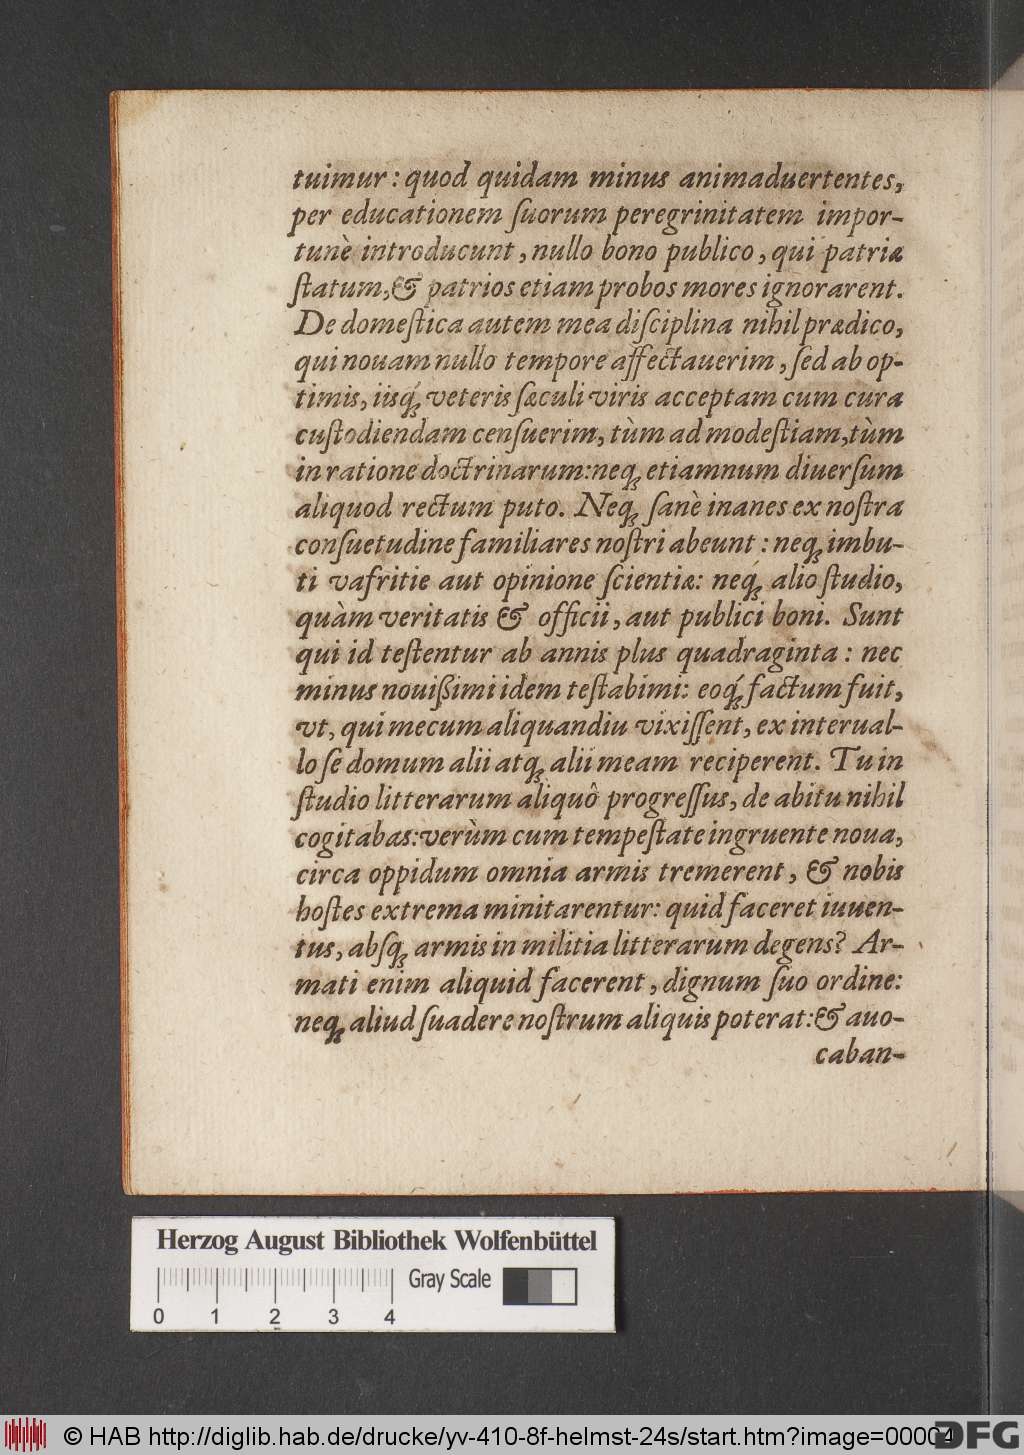 tuimur: quod quidam minus animaduertentes,
per educationem ſuorum peregrinitatem impor-
tunè introducunt, nullo bono publico, qui patriæ
ſtatum, & patrios etiam probos mores ignorarent.
De domeſtica autem mea diſciplina nihil prædico,
qui nouam nullo tempore affectauerim, ſed ab op-
timis, iisq́ꝫ veteris ſæculi viris acceptam cum cura
cuſtodiendam cenſuerim, tùm ad modeſtiam, tùm
in ratione doctrinarum: neqꝫ etiamnum diuerſum
aliquod rectum puto. Neqꝫ ſanè inanes ex noſtra
conſuetudine familiares noſtri abeunt: neqꝫ imbu-
ti vafritie aut opinione ſcientiæ: neq́ꝫ alio ſtudio,
quàm veritatis & officii, aut publici boni. Sunt
qui id teſtentur ab annis plus quadraginta: nec
minus nouißimi idem teſtabimi: eoq́ꝫ factum fuit,
vt, qui mecum aliquandiu vixiſſent, ex interual-
lo ſe domum alii atqꝫ alii meam reciperent. Tu in
ſtudio litterarum aliquô progreſſus, de abitu nihil
cogitabas: verùm cum tempeſtate ingruente noua,
circa oppidum omnia armis tremerent, & nobis
hoſtes extrema minitarentur: quid faceret iuuen-
tus, abſqꝫ armis in militia litterarum degens? Ar-
mati enim aliquid facerent, dignum ſuo ordine:
neqꝫ aliud ſuadere noſtrum aliquis poterat: & auo-
caban-
Herzog August Bibliothek Wolfenbüttel
Gray Scale
0 1 2 3 4
© HAB http://diglib.hab.de/drucke/yv-410-8f-helmst-24s/start.htm?image=00004
DFG